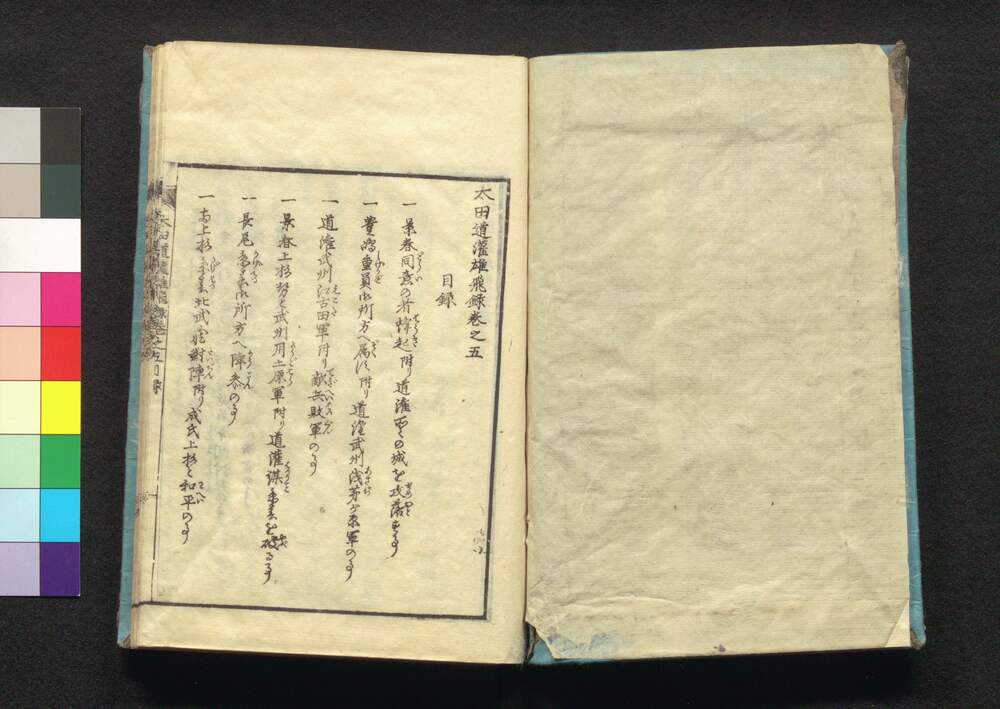 太田道灌雄飛録巻之五
目録
一 景春同意の者蜂起附り道灌所々の城を攻落す事
一 豊嶋重員御所方へ属す附り道灌武州浅茅が原軍の事
一 道灌武州江古田軍附り敵兵敗軍の事
一 景春上杉勢と武州用土原軍附り道灌謀景春を破る事
一 長尾景春御所方へ降参の事
一 両上杉景春北武蔵対陣附り成氏上杉と和平の事
太田道灌雄飛録巻之五目录